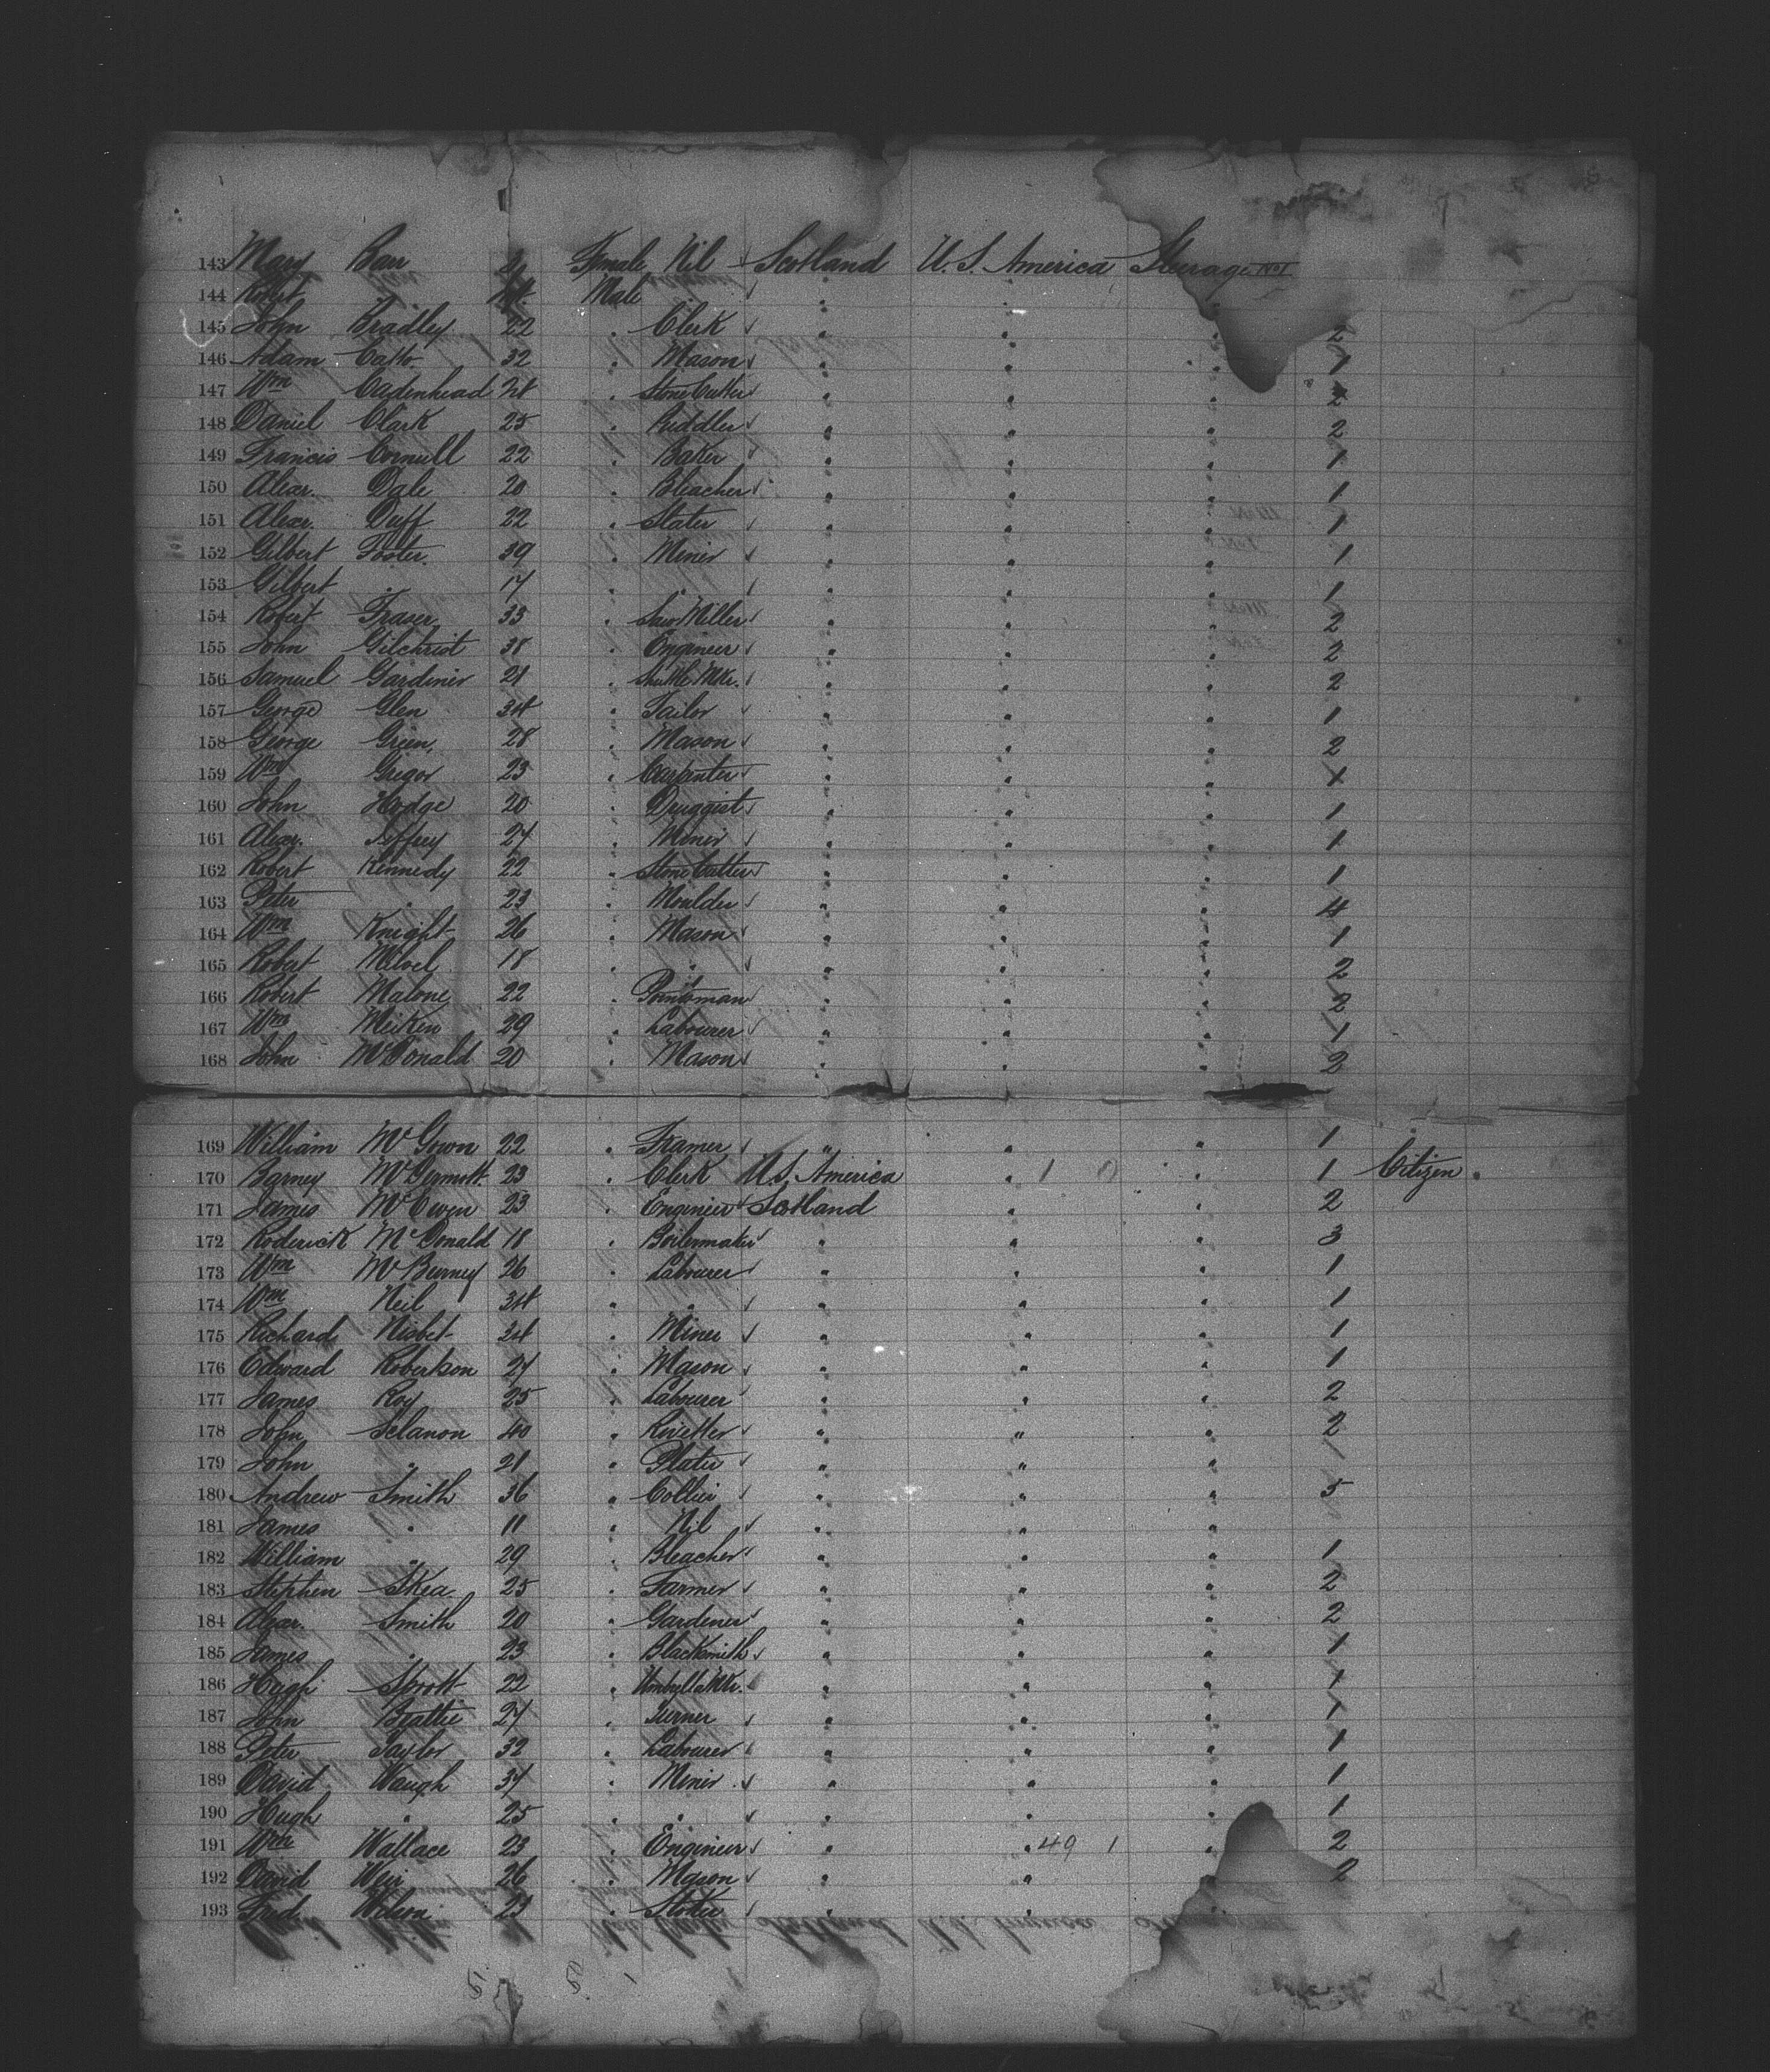 143 Mary Barr 4 Female Nil Scotland U.S. America Steerage No 1
144 Robert " Male " " "
145 John Bradley 22 " Clerk " " " 2
146 Adam Catto 32 " Mason " " " 1
147 Wm Cadenhead 24 " Stone Cutter " " " 2
148 Daniel Clark 25 " Riddler " " " 2
149 Francis Cornull 22 " Baker " " " 1
150 Alexr. Dale 20 " Bleacher " " " 1
151 Alexr. Duff 22 " Slater " " " 1
152 Gilbert Foster 39 " Miner " " " 1
153 Gilbert " 17 " " " " " 1
154 Robert Fraser 33 " Saw Miller " " " 2
155 John Gilchrist 38 " Engineer " " " 2
156 Samuel Gardiner 21 " Shuttle Mkr. " " " 2
157 George Glen 34 " Tailor " " " 1
158 George Green 28 " Mason " " " 2
159 Wm Gregor 23 " Carpenter " " " 1
160 John Hodge 20 " Druggist " " " 1
161 Alexr. Jeffrey 27 " Miner " " " 1
162 Robert Kennedy 22 " Stone Cutter " " " 1
163 Peter " 23 " Moulder " " " 4
164 Wm Knight 26 " Mason " " " 1
165 Robert 18 " " " " " 2
166 Robert Malone 22 " Pointsman " " " 2
167 Wm Meiken 29 " Labourer " " " 1
168 John McDonald 20 " Mason " " " 2
169 William McGown 22 " Framer " " " 1
170 Barney McDermott 23 " Clerk U.S. America " 1 0 " 1 Citizen
171 James McEwen 23 " Engineer Scotland " " 2
172 Roderick McDonald 18 " Boilermaker " " " 3
173 Wm McBurney 26 " Labourer " " " 1
174 Wm Neil 34 " " " " " 1
175 Richard Nisbet 34 " Miner " " " 1
176 Edward Robertson 27 " Mason " " " 1
177 James Roy 25 " Labourer " " " 2
178 John Selanon 40 " Rivetter " " " 2
179 John " 21 " Plater " " " 1
180 Andrew Smith 36 " Collier " " " 5
181 James " 11 " Nil " " "
182 William " 29 " Bleacher " " " 1
183 Stephen Skea 25 " Farmer " " " 2
184 Alexr. Smith 20 " Gardener " " " 2
185 James " 23 " Blacksmith " " " 1
186 Hugh Sprott 22 " Umbylla Mkr. " " " 1
187 John Beattie 27 " Turner " " " 1
188 Peter Taylor 32 " Labourer " " " 1
189 David Waugh 37 " Miner " " " 1
190 Hugh " 25 " " " " " 1
191 Wm Wallace 23 " Engineer " " 49 1 " 2
192 David Weir 26 " Mason " " " 2
193 Fred Wilson 23 " Stoker " " "